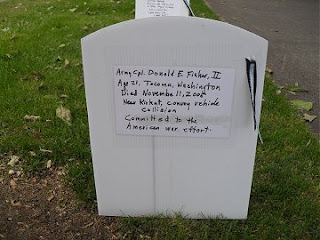 Army Cpl. Donald E. Fisher, II
Age 21, Tacoma, Washington
Died November 11, 2005
Near Kirkuk, convoy vehicle
collision
Committed to the
American war effort.